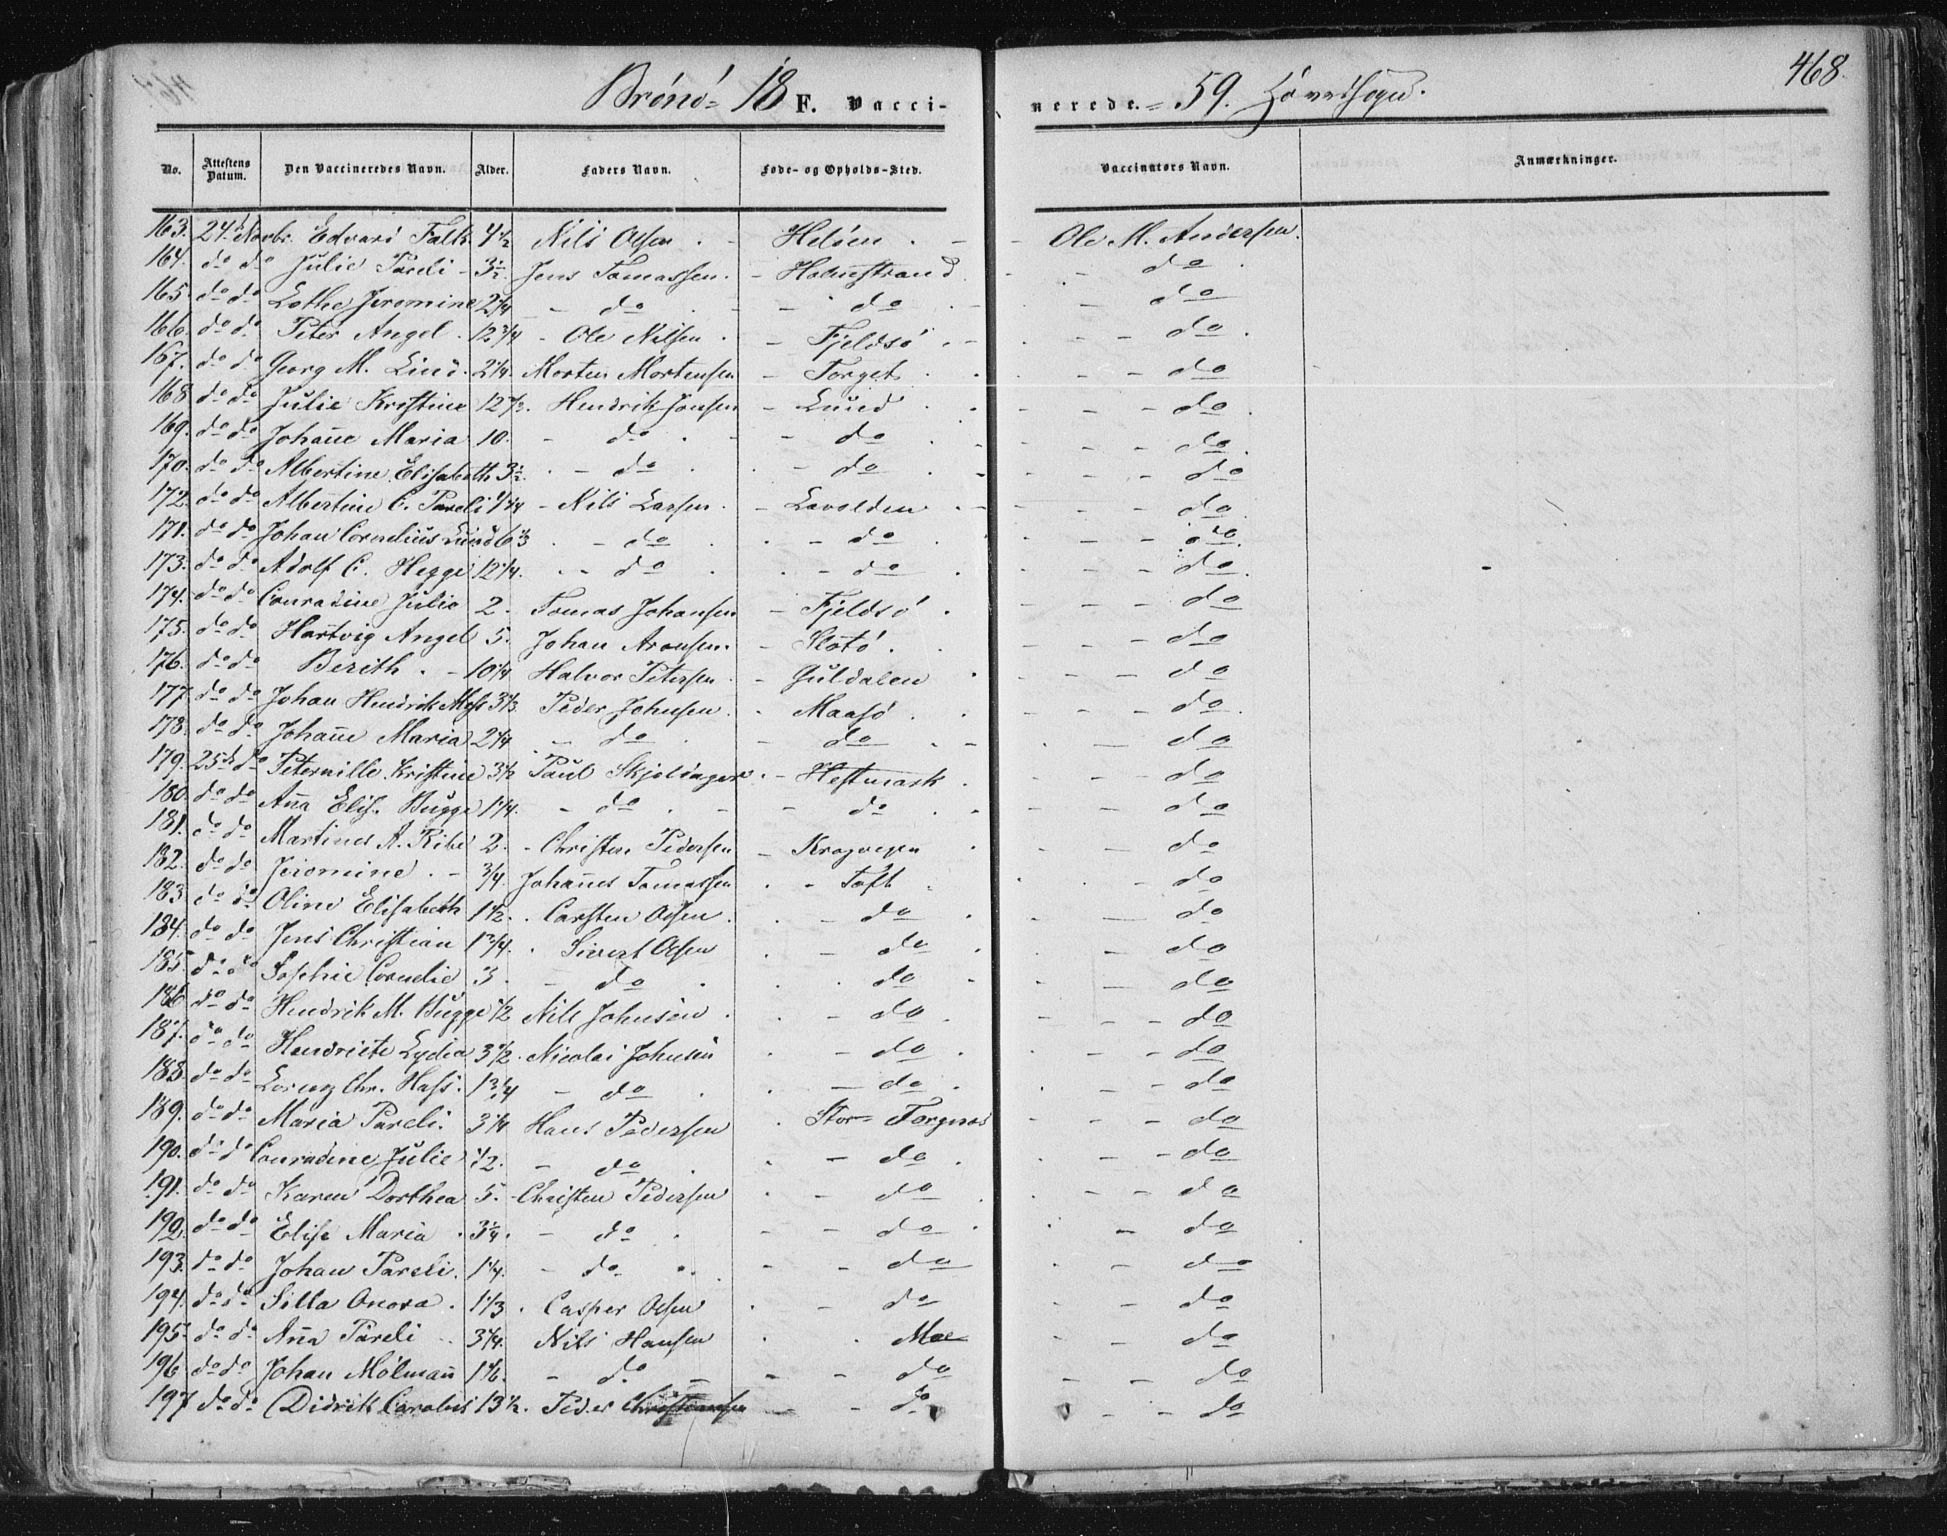 468.
Brönö 18 F. Vacci- nerede. 59. Hovedsogn.
No. Attestens Datum. Den Vaccineredes Navn. Alder. Faders Navn. Føde- og Opholds-Sted. Vaccinators Navn. Anmærkninger.
163. 24 Novbr. Edvard Falk 4½ Nils Olsen Helöen Ole M. Andersen.
164. do do Julie Pareli 3½ Jens Tomassen. Holmstrand do
165. do do Lothe Jeromine 2¼ do do do
166. do do Peter Angel 12¾ Ole Nilsen Fjeldsö do
167. do do Georg M. Lind 2¼. Morten Mortensen Torget do
168 do do Julie Kristine 12½. Hendrik Jonsen Lund do
169. do do Johan̄e Maria 10. do do do
170. do do Albertine Elisabeth 3½. do do do
172. do do Albertine C. Pareli 1¼ Nils Larsen Lavolden do
171. do do Johan Cornelius Lund 6⅓ do do do
173. do do Adolf C. Hegge 12¼. do do do
174. do do Conradine Julie 2. Tomas Johansen Fjeldsö do
175. do do Hartvig Angel 5. Johan Aronsen. Slotö do
176. do do Berith 10¼ Halvor Petersen Guldalen do
177. do do Johan Hendrik 3⅓. Peder Johnsen Maasö do
178. do do Johan̄e Maria 2¼ do do do
179. 25 do Peternille Kristine 3½ Paul Hestmark do
180. do do An̄a Elis. Bugge 1¼. do do do
181. do do Martines A. Ribe 2. Christen Pedersen do
182. do do Jeromine ¾ Johan̄es Tomassen Toft do
183. do do Oline Elisabeth 1½. Carsten Olsen do do
184. do do Jens Christian 1¾. Sivert Olsen do do
185. do do Sophie Cornelie 3. do do do
186 do do Hendrik M. Bugge ½ Nils Johnsen do do
187. do do Hendriete Lydia 3½. Nicolai Johnsen do do
188. do do Lorenz Chr. Hass. 1¾ do do do
189. do do Maria Pareli. 3¼ Hans Pedersen Stor-Torgnes do
190. do do Conradine Julie ½. do do do
191. do do Karen Dorthea 5. Christen Pedersen do do
192. do do Elise Maria 3¼. do do do
193. do do Johan Pareli. 1¼. do do do
194. do do Silla Onora. 1⅓. Casper Olsen do do
195. do do An̄a Pareli 3¼. Nils Hansen Moe do
196 do do Johan Mölman̄ 1⅙. do do do
197 do do Didrik Carolus 13½. Peder Christensen do do